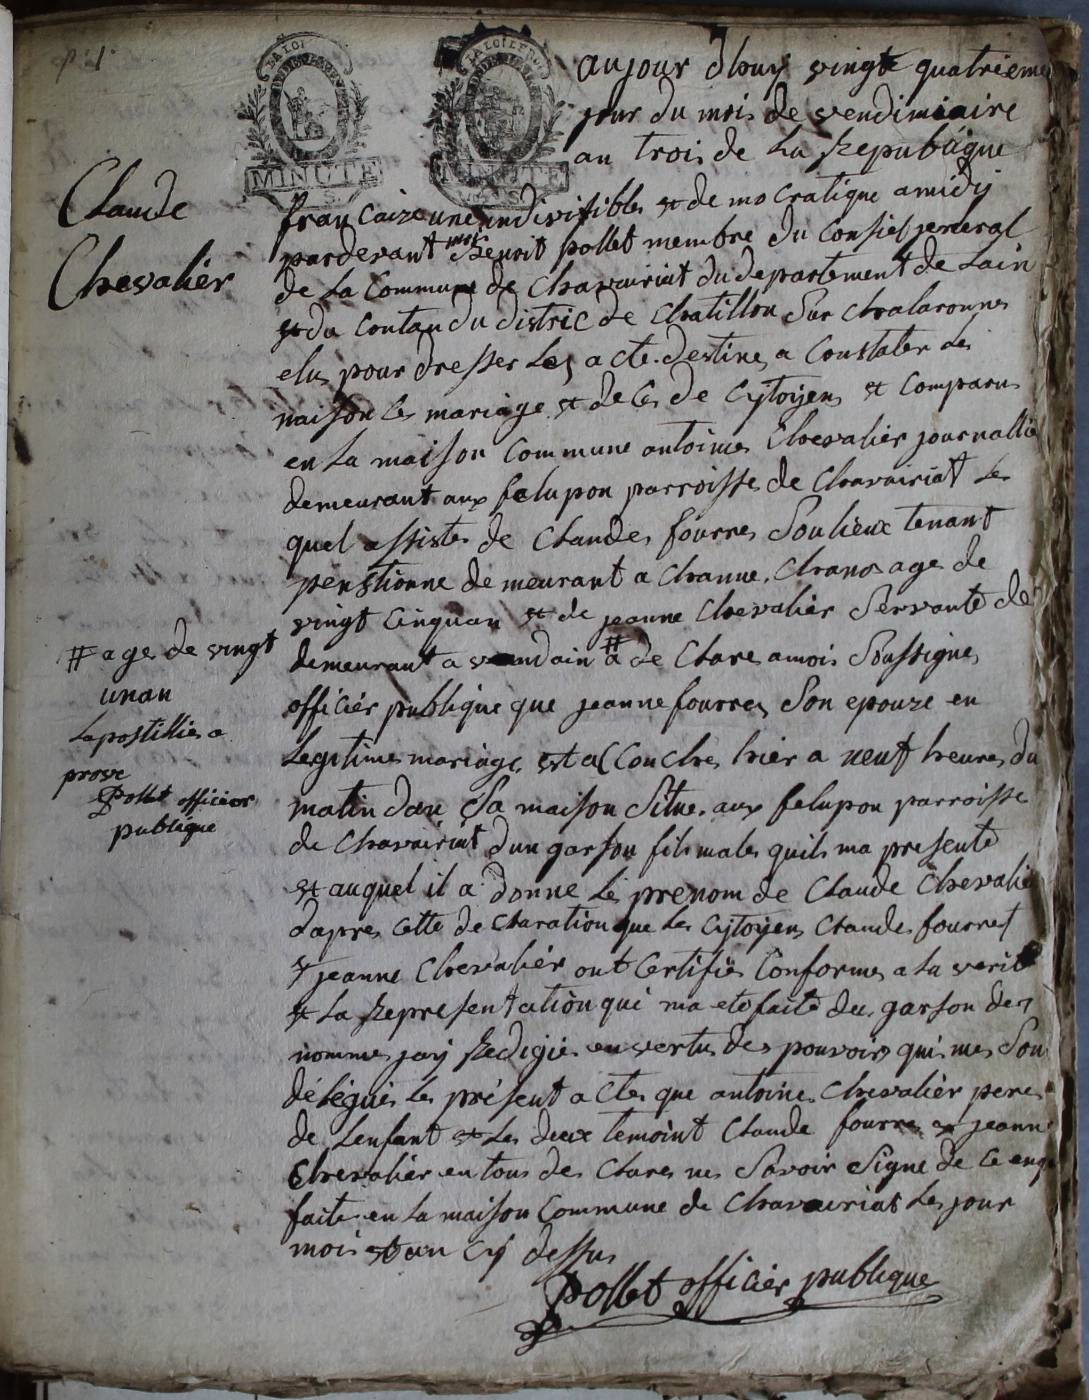 p. 1.
LA LOI
MINUTE
LA LOI LE ROI
MINUTE
aujour dhuy vingt quatrieme
jour du mois de vendimiaire
an trois de La Republique
Claude
Chevalier
francaize une indivisibles et de mo cratique a midy
pardevant moi Benoit pollet membre du Consiel jeneral
de La Commune de Chavairiat du departement de Lain
et du Contan du distric de Chatillon Sur Chalaronnes
elus pour dresser Les acte destines a Constater Les
naison les mariage et de Ces de Cytoyens et Comparus
en La maison Commune antoines Chevalier journallie
demeurant aux felupon parroisse de Chavairiat Les
quel assistes de Claudes fourres Soulieux tenant
penstionne demeurant a Channe. Chanos ages de
vingt Cinquan et de jeanne Chevalier Servante de
demeurant a vandain # a de Clares amois Soussignes
# ages de vingt
unan
Lapostillies a
prove
Pollet officier
publique
officier publique que jeanne fourres Son epouze en
Legitimes mariage est acCouches hier a neuf heures du
matin dan Sa maison Situes aux felupon parroisse
de Chavairiat dun garson fils males quils ma presente
et auquel il a donne Le prenom de Claude Chevalie
dapres Cette de Claration que Les Cytoyens Claudes fourret
et jeanne Chevalier ont Certifies Conformes a La verite
et La Representation qui ma ete faite des garson des
nommes jay Redigies en vertus des pouvoirs qui mes Son
délégués Les présent actes que antoines Chevalier peres
de Lenfant et Les deux temoint Claude fourres et jeanne
Chevalier en tous de Clares nes Savoir Signe de Ce enq
faites en La maison Commune de Chavairiat Les jour
mois et an Cy dessus
Pollet officier publique